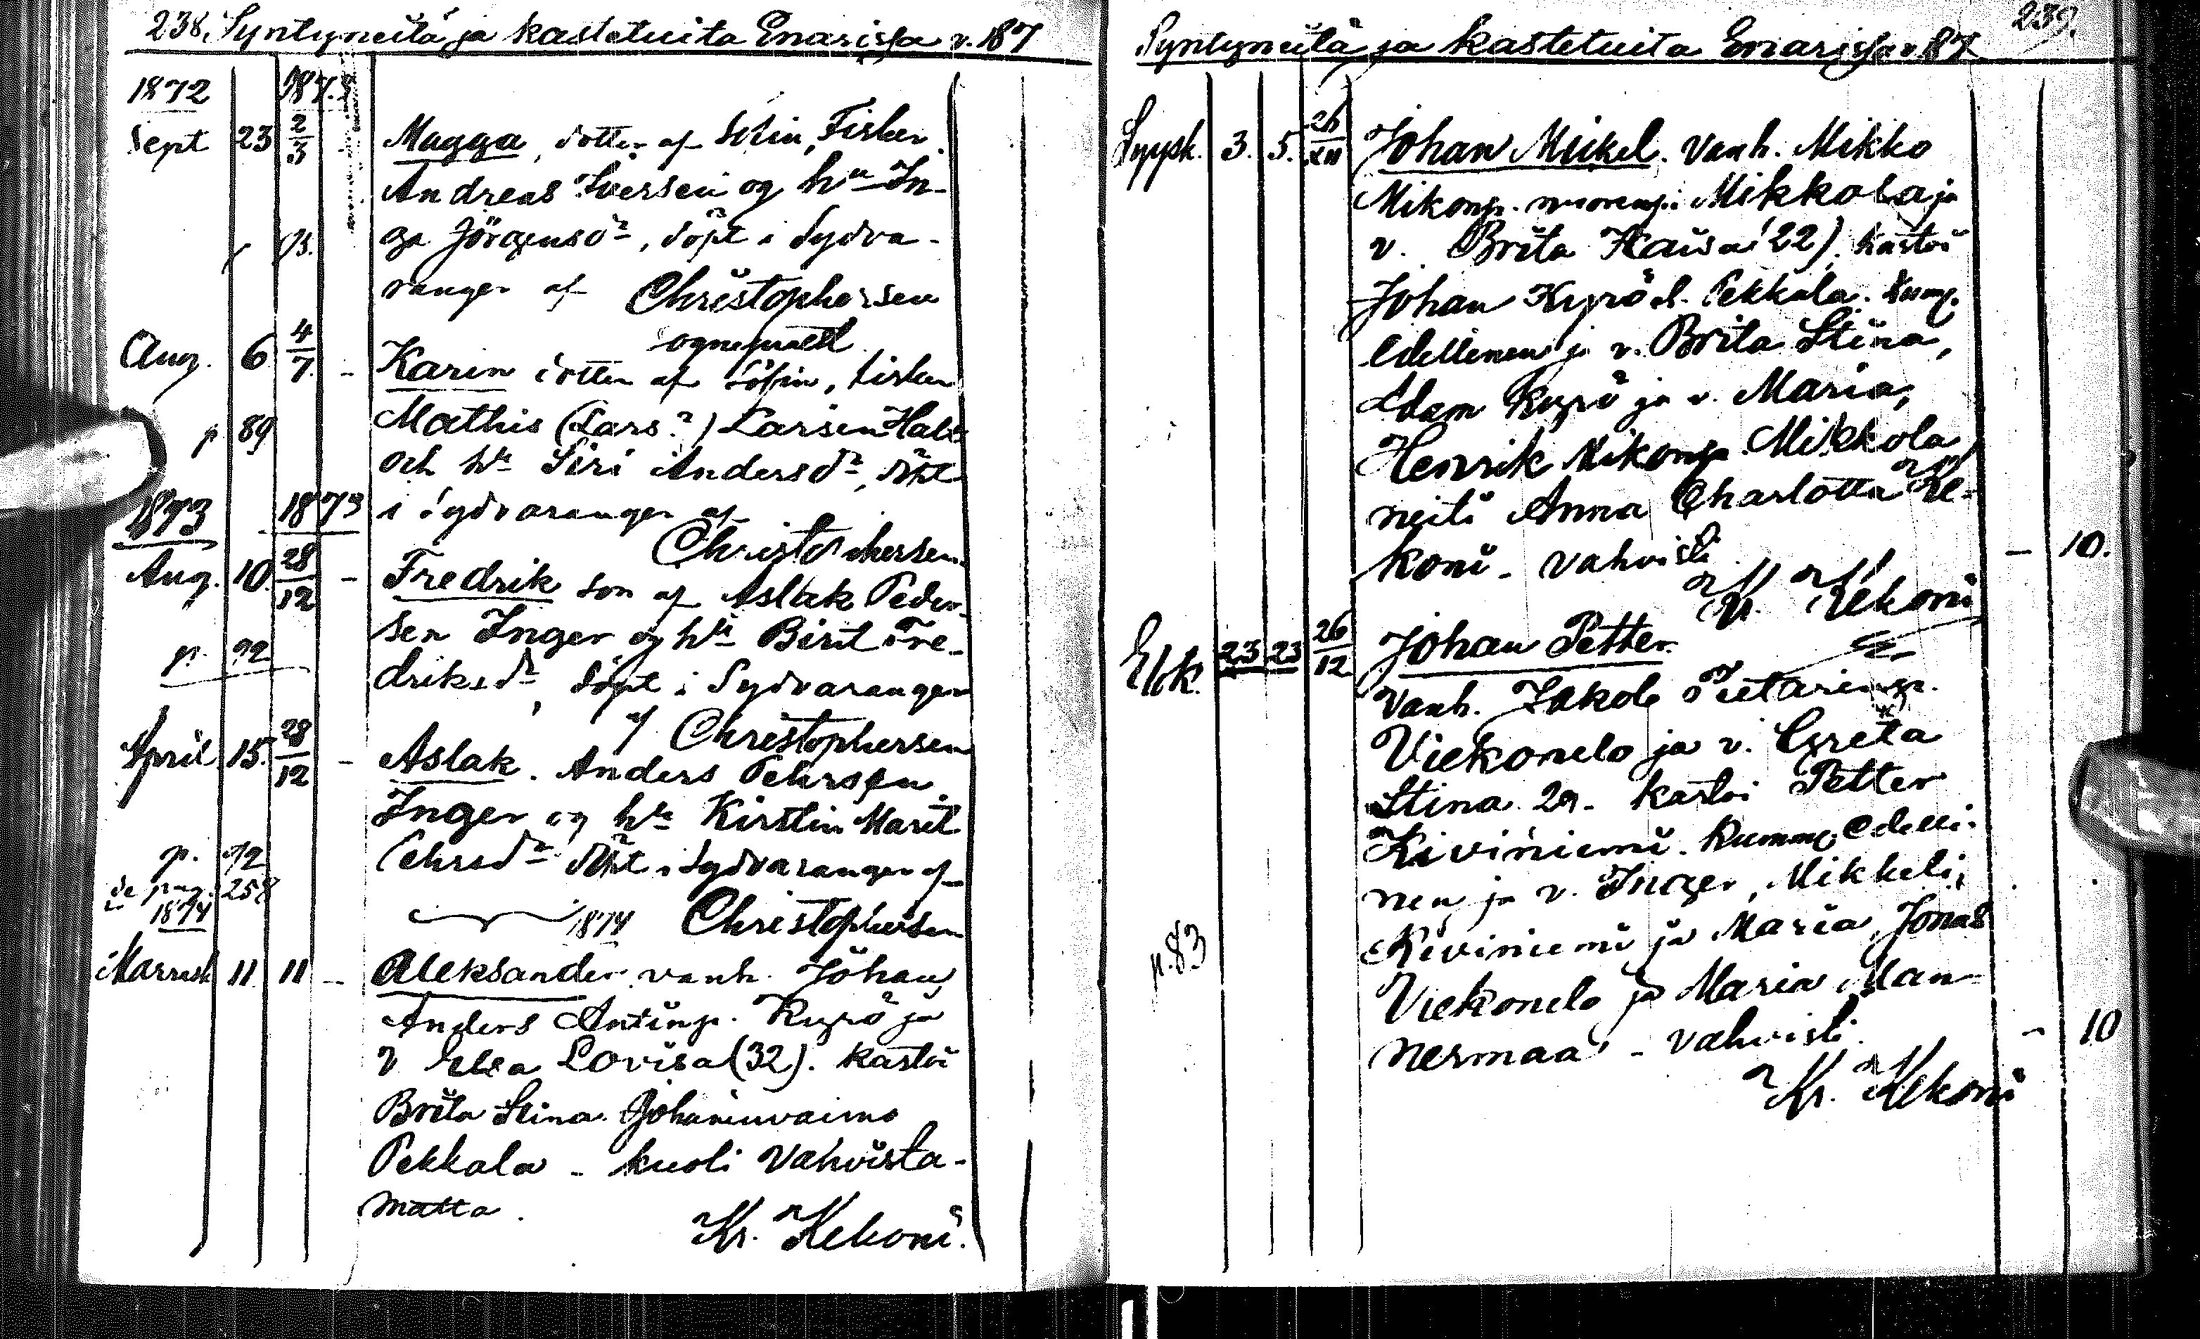 238. Syntyneitä ja kastetuita Enarissa v. 187
1872 187.3
Sept 23 2/3 - Magga, dotter af Fisker
Andreas Iversen og hu In-
ga Jörgensd., döpt i Sydva-
ranger af Christophersen
Aug. 6 4/7 - Karin dotter af Fisker
p 89 Mathis (Lars?) Larsen
och hu Siri Andersd., döpt
1873 1873 i Sydvaranger af
Christophersen
Aug. 10. 28/12 - Fredrik son af Aslak Peder-
sen Inger og hu Birit Fre-
p. 92 driksd., döpt i Sydvaranger
af Christophersen
April 15. 28/12 - Aslak. Anders Pehrsen
Inger og hu Kirstin Marit
p. 92 Pehrsd. döpt i Sydvaranger af
se pag. 258
1874 1874 Christophersen
Marrask 11 11 - Aleksander vanh. Johan
Anders Antinp. Kyrö ja
v Elsa Lovisa (32). kastoi
Brita Stina Johaninvaimo
Pekkala - kuoli vahvista-
matta.
Kr. Kekoni.
239.
Syntyneitä ja kastetuita Enarissa v. 187
Syysk. 3. 5. 26/XII Johan Mickel. vanh. Mikko
Mikonp. nuorempi Mikkola ja
v. Brita Kaisa (22). kastoi
Johan Kyrö l. Pekkala. kump.
edellinen ja v. Brita Stina,
Adam Kyrö ja v. Maria,
Henrik Mikonp. Mikkola
neiti Anna Charlotta Ke-
koni - vahvisti - 10.
Kr. Kekoni
23 23 26/12 Johan Petter.
vanh. Jakob Pietarinp.
Viekonelo ja v. Greta
Stina 29. kastoi Petter
Kiviniemi. kumm. edelli-
nen ja v. Inger, Mikkeli
Kiviniemi ja Maria, Jonas
p. 83 Viekonelo ja Maria Man-
nermaa - vahvisti. - 10
Kr. Kekoni